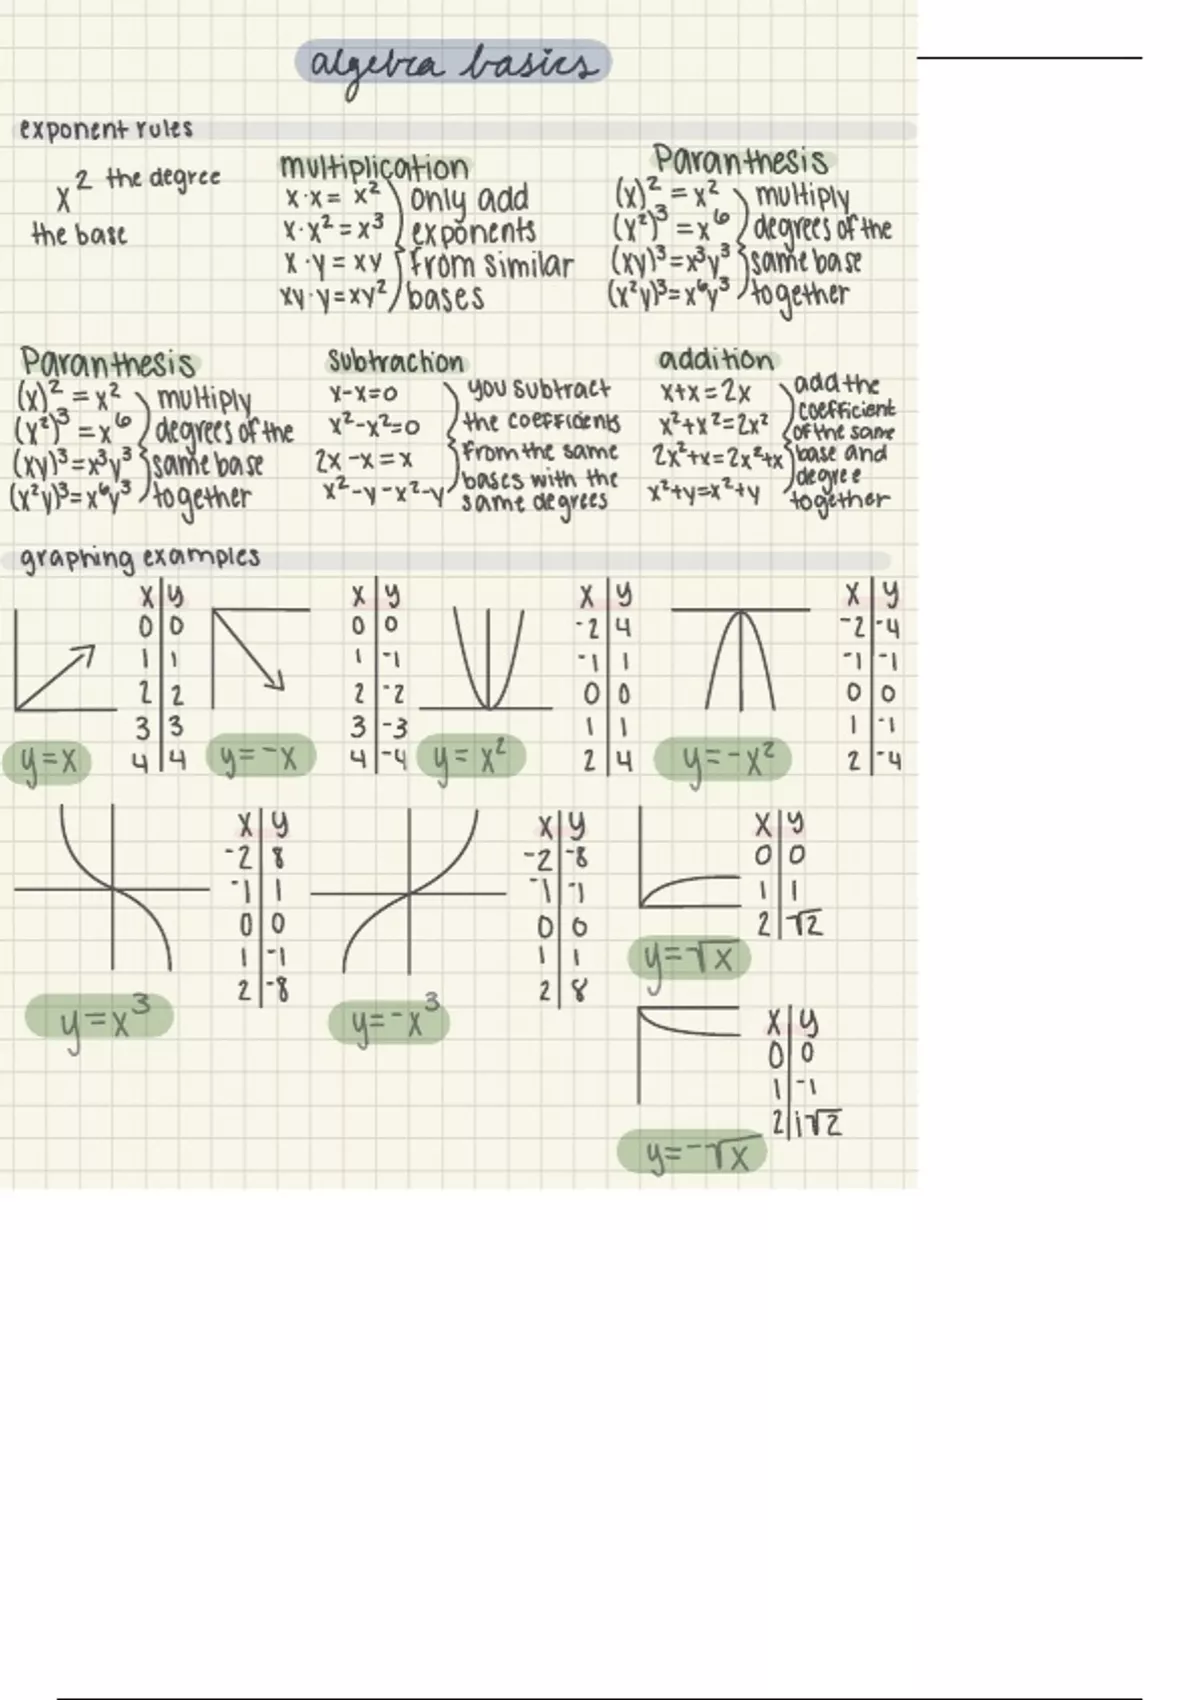 algebra basics
exponent rules
x² the degree
the base
multiplication
x·x = x²
x·x² = x³
x·y = xy
xy·y = xy²
only add
exponents
from similar
bases
Paranthesis
(x)² = x²
(x²)³ = x⁶
(xy)³ = x³y³
(x²y)³ = x⁶y³
multiply
degrees of the
same base
together
Paranthesis
(x)² = x²
(x²)³ = x⁶
(xy)³ = x³y³
(x²y)³ = x⁶y³
multiply
degrees of the
same base
together
subtraction
x-x=0
x²-x²=0
2x-x=x
x²-y-x²-y
you subtract
the coefficients
from the same
bases with the
same degrees
addition
x+x=2x
x²+x²=2x²
2x²+x=2x²+x
x²+y=x²+y
add the
coefficient
of the same
base and
degree
together
graphing examples
x y
0 0
1 1
2 2
3 3
4 4
y=x
x y
0 0
1 -1
2 -2
3 -3
4 -4
y=-x
x y
-2 4
-1 1
0 0
1 1
2 4
y=x²
x y
-2 -4
-1 -1
0 0
1 -1
2 -4
y=-x²
x y
-2 8
-1 1
0 0
1 -1
2 -8
y=x³
x y
-2 -8
-1 -1
0 0
1 1
2 8
y=-x³
x y
0 0
1 1
2 √2
y=√x
x y
0 0
1 -1
2 i√2
y=-√x